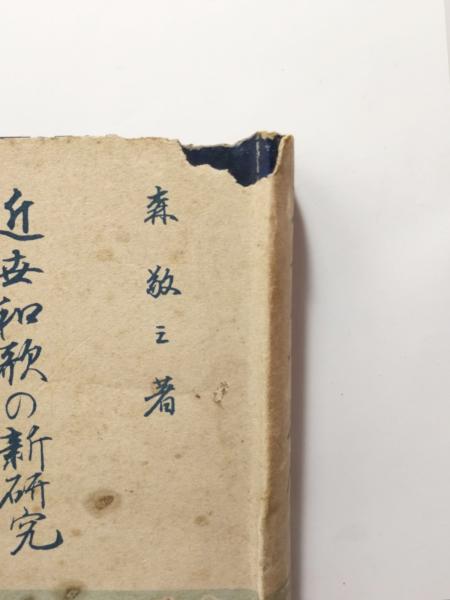 森敬三著
近世和歌の新研究